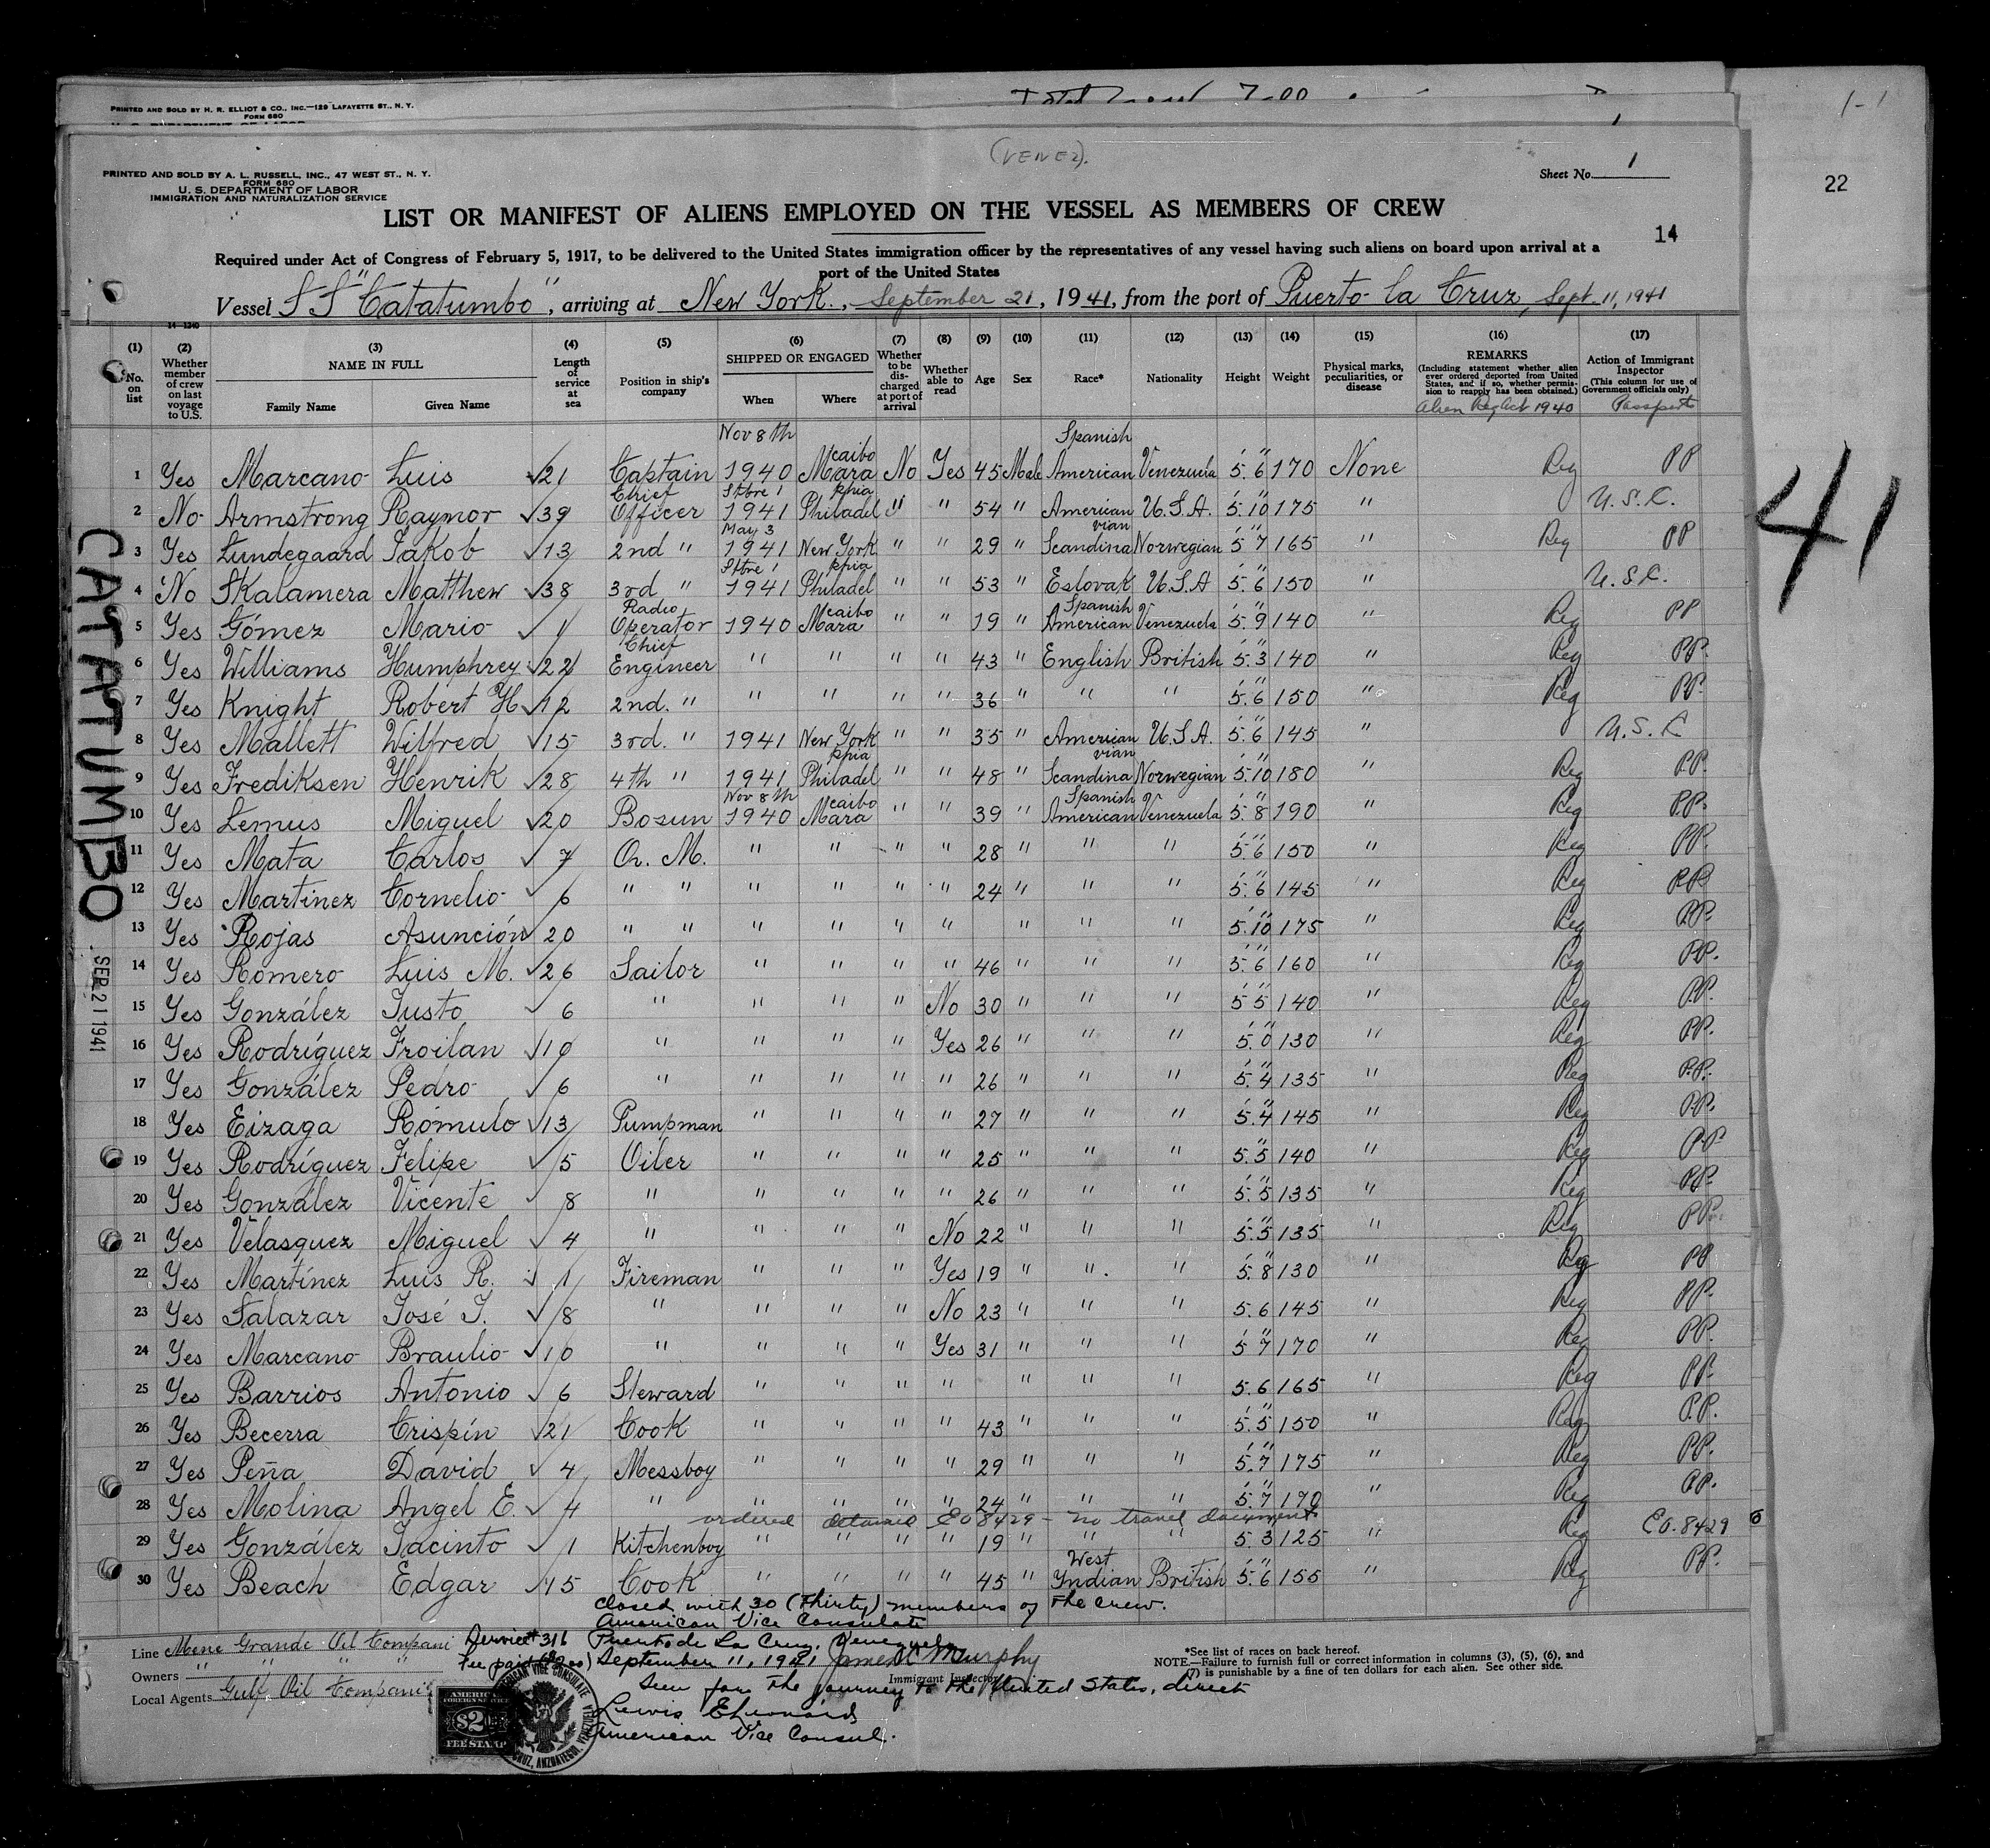 Total 7-00
1-1
PRINTED AND SOLD BY H. R. ELLIOT & CO., INC.—129 LAFAYETTE ST., N. Y.
FORM 680
(VENEZ).
22
PRINTED AND SOLD BY A. L. RUSSELL, INC., 47 WEST ST., N. Y.
FORM 680
U. S. DEPARTMENT OF LABOR
IMMIGRATION AND NATURALIZATION SERVICE
Sheet No. 1
LIST OR MANIFEST OF ALIENS EMPLOYED ON THE VESSEL AS MEMBERS OF CREW
14
Required under Act of Congress of February 5, 1917, to be delivered to the United States immigration officer by the representatives of any vessel having such aliens on board upon arrival at a
port of the United States
Vessel SS "Catatumbo", arriving at New York., September 21, 1941, from the port of Puerto la Cruz, Sept. 11, 1941
14-1240
(1) No. on list (2) Whether member of crew on last voyage to U.S. (3) NAME IN FULL Family Name Given Name (4) Length of service at sea (5) Position in ship's company (6) SHIPPED OR ENGAGED When Where (7) Whether to be discharged at port of arrival (8) Whether able to read (9) Age (10) Sex (11) Race* (12) Nationality (13) Height (14) Weight (15) Physical marks, peculiarities, or disease (16) REMARKS (Including statement whether alien ever ordered deported from United States, and if so, whether permission to reapply has been obtained.) Alien Reg Act 1940 (17) Action of Immigrant Inspector (This column for use of Government officials only) Passport
1 Yes Marcano Luis 21 Captain Nov 8th 1940 Maracaibo No Yes 45 Male Spanish American Venezuela 5' 6" 170 None Reg PP
2 No Armstrong Raymor 39 Chief Officer Stbre 1 1941 Philadelphia " " 54 " American U.S.A. 5' 10" 175 " U.S.C.
3 Yes Lundegaard Jakob 13 2nd " May 3 1941 New York " " 29 " Scandinavian Norwegian 5' 7" 165 " Reg PP
4 No Skalamera Matthew 38 3rd " Stbre 1 1941 Philadelphia " " 53 " Eslovak U.S.A 5' 6" 150 " U.S.C.
5 Yes Gómez Mario 1 Radio Operator 1940 Maracaibo " " 19 " Spanish American Venezuela 5' 9" 140 " Reg PP
6 Yes Williams Humphrey 22 Chief Engineer " " " " 43 " English British 5' 3" 140 " Reg PP.
7 Yes Knight Robert H. 12 2nd. " " " " " 36 " " " 5' 6" 150 " Reg PP.
8 Yes Mallett Wilfred 15 3rd. " 1941 New York " " 35 " American U.S.A. 5' 6" 145 " U.S.C
9 Yes Frediksen Henrik 28 4th " 1941 Philadelphia " " 48 " Scandinavian Norwegian 5' 10" 180 " Reg PP.
10 Yes Lemus Miguel 20 Bosun Nov 8th 1940 Maracaibo " " 39 " Spanish American Venezuela 5' 8" 190 " Reg PP.
11 Yes Mata Carlos 7 Q. M. " " " " 28 " " " 5' 6" 150 " Reg PP.
12 Yes Martínez Cornelio 6 " " " " " " 24 " " " 5' 6" 145 " Reg PP
13 Yes Rojas Asunción 20 " " " " " " " " " 5' 10" 175 " Reg PP.
14 Yes Romero Luis M. 26 Sailor " " " " 46 " " " 5' 6" 160 " Reg PP.
15 Yes González Justo 6 " " " " No 30 " " " 5' 5" 140 " Reg PP.
16 Yes Rodríguez Froilan 10 " " " " Yes 26 " " " 5' 0" 130 " Reg PP.
17 Yes González Pedro 6 " " " " " 26 " " " 5' 4" 135 " Reg PP.
18 Yes Eizaga Rómulo 13 Pumpman " " " " 27 " " " 5' 4" 145 " Reg PP.
19 Yes Rodríguez Felipe 5 Oiler " " " " 25 " " " 5' 5" 140 " Reg PP
20 Yes González Vicente 8 " " " " " 26 " " " 5' 5" 135 " Reg PP.
21 Yes Velasquez Miguel 4 " " " " No 22 " " " 5' 5" 135 " Reg PP.
22 Yes Martínez Luis R. 1 Fireman " " " Yes 19 " " " 5' 8" 130 " Reg PP
23 Yes Salazar José J. 8 " " " " No 23 " " " 5. 6 145 " Reg PP.
24 Yes Marcano Braulio 10 " " " " Yes 31 " " " 5' 7" 170 " Reg PP.
25 Yes Barrios Antonio 6 Steward " " " " " " " 5. 6 165 " Reg PP.
26 Yes Becerra Crispín 21 Cook " " " " 43 " " " 5' 5" 150 " Reg P.P.
27 Yes Peña David 4 Messboy " " " " 29 " " " 5' 7" 175 " Reg PP.
28 Yes Molina Angel E. 4 " " " " " 24 " " " 5' 7" 170 " Reg PP.
ordered detained EO 8429 - no travel document
29 Yes González Jacinto 1 Kitchenboy " " " " 19 " " " 5. 3 125 " Reg EO. 8429
30 Yes Beach Edgar 15 Cook " " " " 45 " West Indian British 5' 6" 155 " Reg PP.
Closed with 30 (Thirty) members of the crew.
American Vice Consulate
Line Mene Grande Oil Compani Service # 316 Puerto de La Cruz, Venezuela
Owners " " " " Fee paid ($2.00) September 11, 1941 James C Murphy
Immigrant Inspector
Local Agents Gulf Oil Compani
Seen for the journey to the United States, direct
Lewis E Leonard
American Vice Consul.
*See list of races on back hereof.
NOTE.—Failure to furnish full or correct information in columns (3), (5), (6), and
(7) is punishable by a fine of ten dollars for each alien. See other side.
AMERICAN FOREIGN SERVICE $2 FEE STAMP
AMERICAN VICE CONSULATE CRUZ, ANZOATEGUI, VENEZUELA
CATATUMBO
SEP 21 1941
41